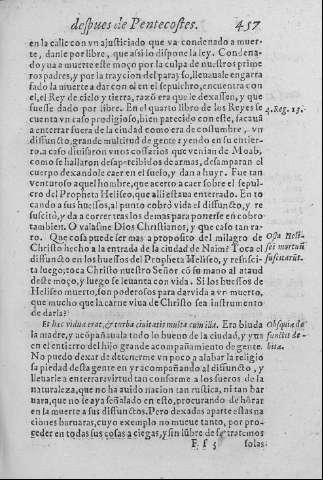 despues de Pentecostes. 457
en la calle con vn ajusticiado que va condenado a muer-
te, danle por libre, que assi lo dispone la ley. Condena-
do yua a muerte este moço por la culpa de nuestros prime
ros padres, y por la traycion del parayso, lleuauale engarra
fado la muerte a dar con el en el sepulchro, encuentra con
el, el Rey de cielo y tierra, razõ era que le dexassen, y que
fuesse dado por libre. En el quarto libro de los Reyes se
cuenta vn caso prodigioso, bien parecido con este, sacauã
4. Reg. 13.
a enterrar fuera de la ciudad como era de costumbre, vn
disfuncto, grande multitud de gente yendo en su entier-
ro. a caso diuisaron vnos cossarios que venian de Moab,
como se hallaron desapercibidos de armas, desamparan el
cuerpo dexandole caer en el suelo, y dan a huyr. Fue tan
venturoso aquel hombre, que acerto a caer sobre el sepul-
cro del Propheta Heliseo, que alli estaua enterrado. En to
cando a sus huessos, al punto cobrò vida el disfuncto, y re
suscitò, y da a correr tras los demas para ponerse en cobro
tambien. O valasme Dios Christianos, y que caso tan ra-
ro. Que cosa puede ser mas a proposito del milagro de
Ossa Heli-
Christo hecho a la entrada de la ciudad de Naim? Toca el
sei mortuũ
disfuncto en los huessos del Propheta Heliseo, y resusci-
suscitarũt.
ta luego; toca Christo nuestro Señor cõ su mano al ataud
deste moço, y luego se leuanta con vida. Si los huessos de
Heliseo muerto, son poderosos para dar vida a vn muerto,
que mucho que la carne viua de Christo sea instrumento
de darla?
Et hæc vidua erat, & turba ciuitatis multa cum illa. Era biuda
Obsequia de
la madre, y acõpañauala todo lo bueno de la ciudad, y yuã
functis de-
en el entierro del hijo grande acompañamiento de gente.
bita.
No puedo dexar de detenerme vn poco a alabar la religio
sa piedad desta gente en yr acompañando al disfuncto, y
lleuarle a enterrar virtud tan conforme a los fueros de la
naturaleza, que no ha auido nacion tan rustica, ni tan bar
uara, que no se aya señalado en esto, procurando de hõrar
en la muerte a sus disfunctos. Pero dexadas aparte estas na
ciones baruaras, cuyo exemplo no mueue tanto, por pro-
ceder en todas sus cosas a ciegas, y sin lũbre de fe tratemos
F f f 5 solas